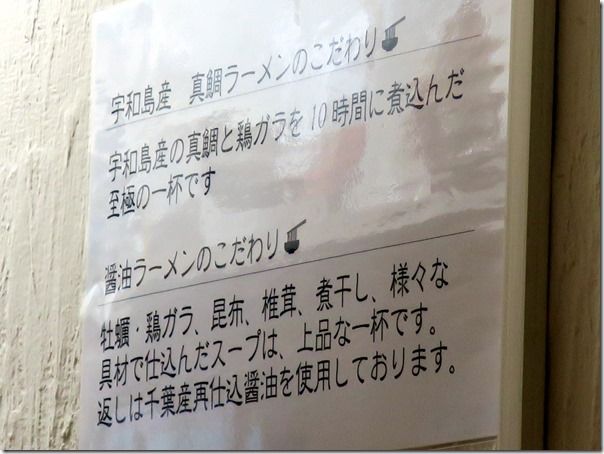 宇和島産　真鯛ラーメンのこだわり
宇和島産の真鯛と鶏ガラを10時間に煮込んだ
至極の一杯です
醤油ラーメンのこだわり
牡蠣・鶏ガラ、昆布、椎茸、煮干し、様々な
具材で仕込んだスープは、上品な一杯です。
返しは千葉産再仕込醤油を使用しております。